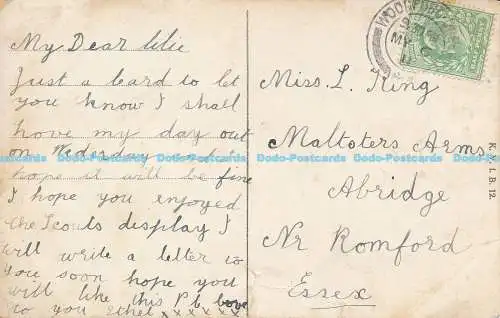 My Dear
Just a Card to let
you know I shall
have my day out
on Wedersday and I
hope it will be fine
I hope you enjoyed
the Scouts display I
will write a letter to
you soon hope you
will like this P.C love
to you Ethel xxxxxxx
Miss. L. King
Maltsters Arms
Abridge
Nr Romford
Essex
WOODFORD
Dodo-Postcards Dodo-Postcards Dodo-Postcards Dodo-Postcards Dodo-Postcards Dodo-Postcards
I. B. 12.